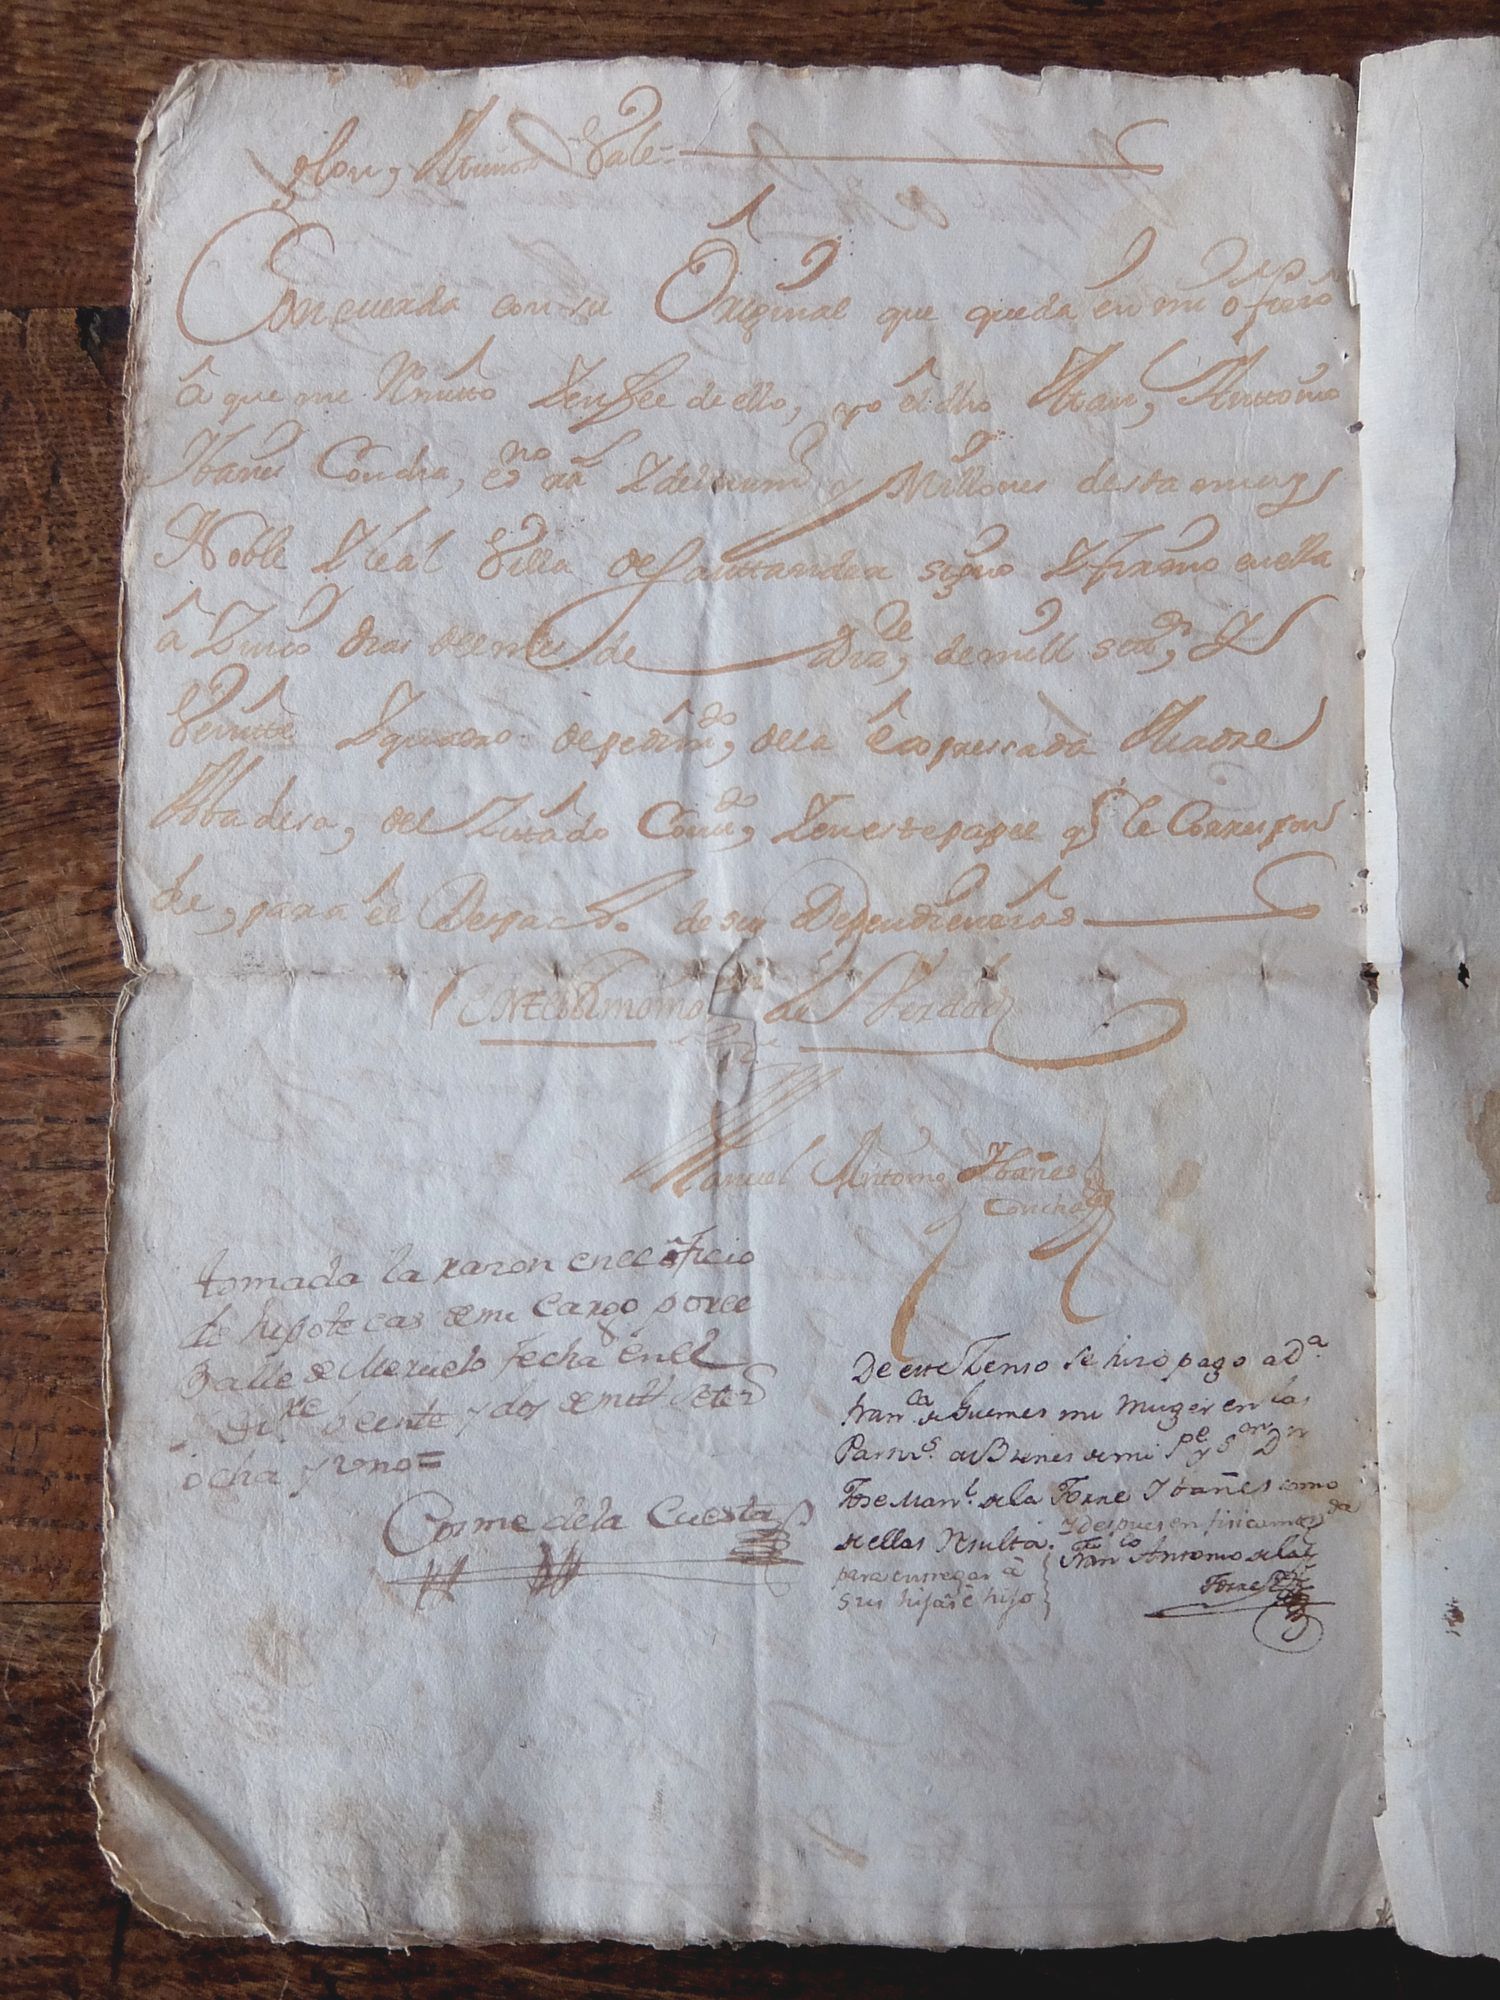 Vale =
Concuerda con su Original que queda en mi ofizio
â que me Rmitto Y en fee de ello, yo el dho Man, Anttonio
Ibañes Concha, es no Y del num y Millones desta muy
Noble Y leal Villa de Santtander signo Y firmo en ella
â Zinco dias del mes de de mill sets, Y
Veintte Y quatro de pedimto, de la Expressada Madre
Abadesa, del Zittado Conv, Y en este papel q le Correspon
de, para el Despacho de sus Dependienzias
En testtimonio de Verdad
Manuel Antonio Ybañes
Concha
tomada la razon en el ôficio
de hipotecas de mi Cargo por el
Balle de Meruelo fecha en el
Di re beente y dos de mill Setez
ocha y uno =
Cosme de la Cuesta
De este Zenso se hizo pago a Da.
Franca de Guemes mi Muger en las
Partns. de Bienes de mi Pe y Sor Dn
Jose Manl. de la Torre Ibañes como
de ellas Resulta. y despues en finicam
para entregar â
sus hijas è hijo
Franco Antonio de la
Torre